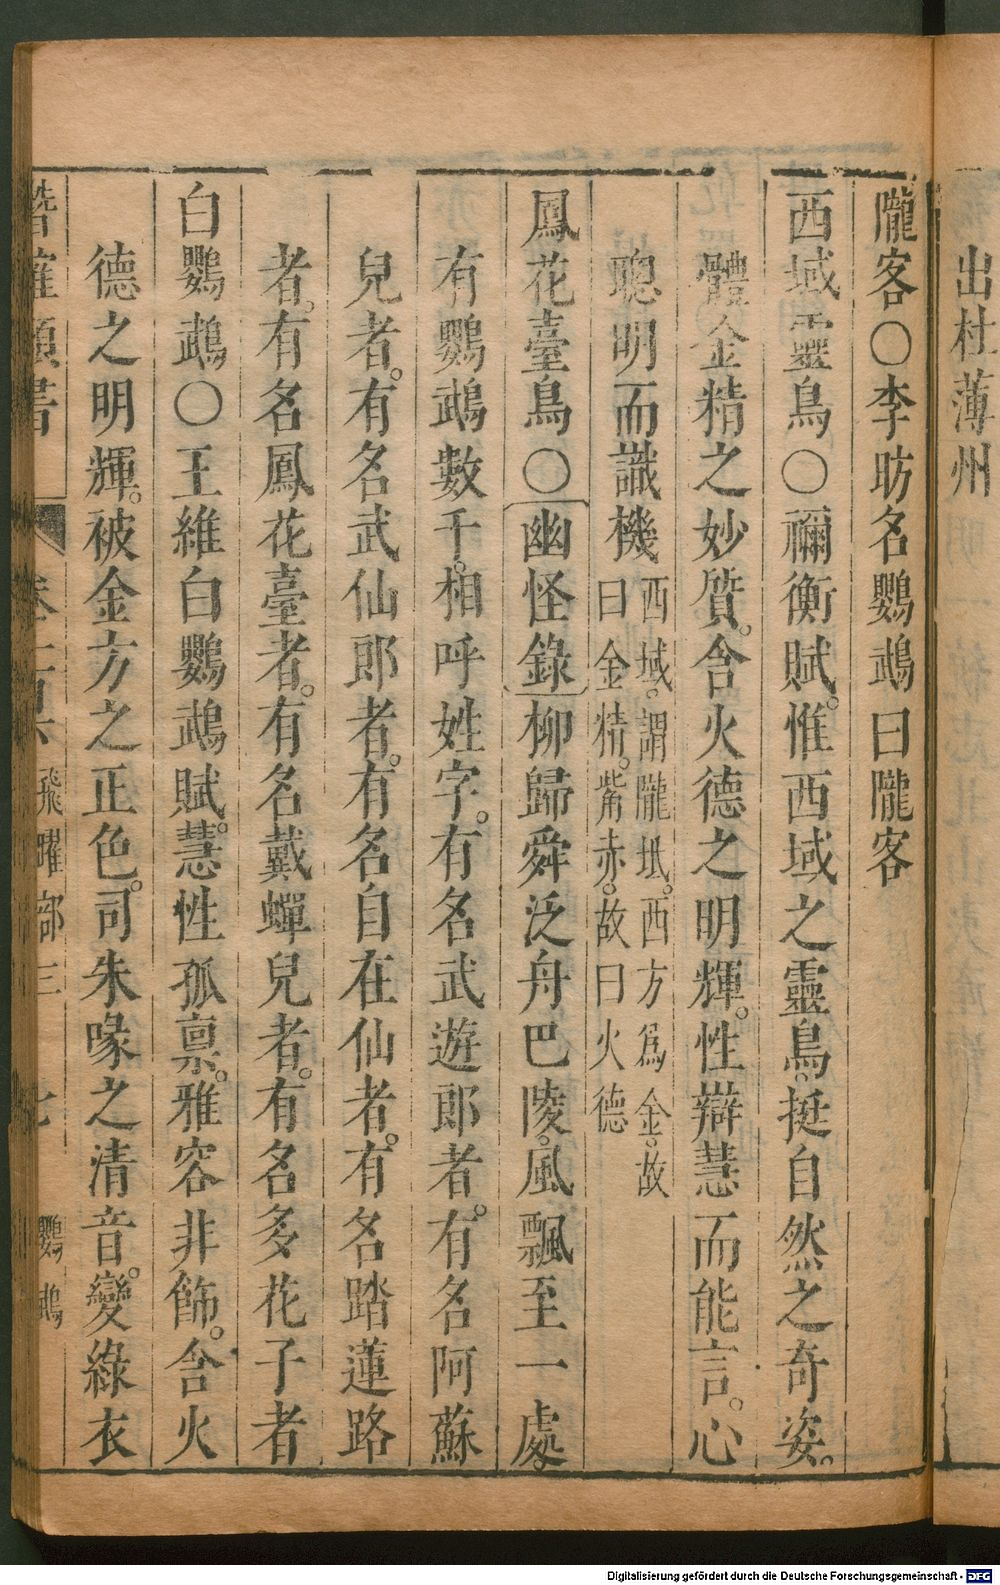 出杜薄州
隴客〇李昉名鸚鵡曰隴客
西域靈鳥〇禰衡賦。惟西域之靈鳥。挺自然之奇姿。
體金精之妙質。含火德之明輝。性辯慧而能言。心
聰明而識機
西域。謂隴坻。西方爲金。故
曰金精。觜赤。故曰火德
鳳花臺鳥〇幽怪錄柳歸舜泛舟巴陵。風飄至一處。
有鸚鵡數千。相呼姓字。有名武遊郎者。有名阿蘇
兒者。有名武仙郎者。有名自在仙者。有名踏蓮路
者。有名鳳花臺者。有名戴蟬兒者。有名多花子者
白鸚鵡〇王維白鸚鵡賦。慧性孤禀。雅容非飾。含火
德之明輝。被金方之正色。司朱喙之清音。變綠衣
類書 飛躍部三 七 鸚鵡
Digitalisierung gefördert durch die Deutsche Forschungsgemeinschaft - DFG